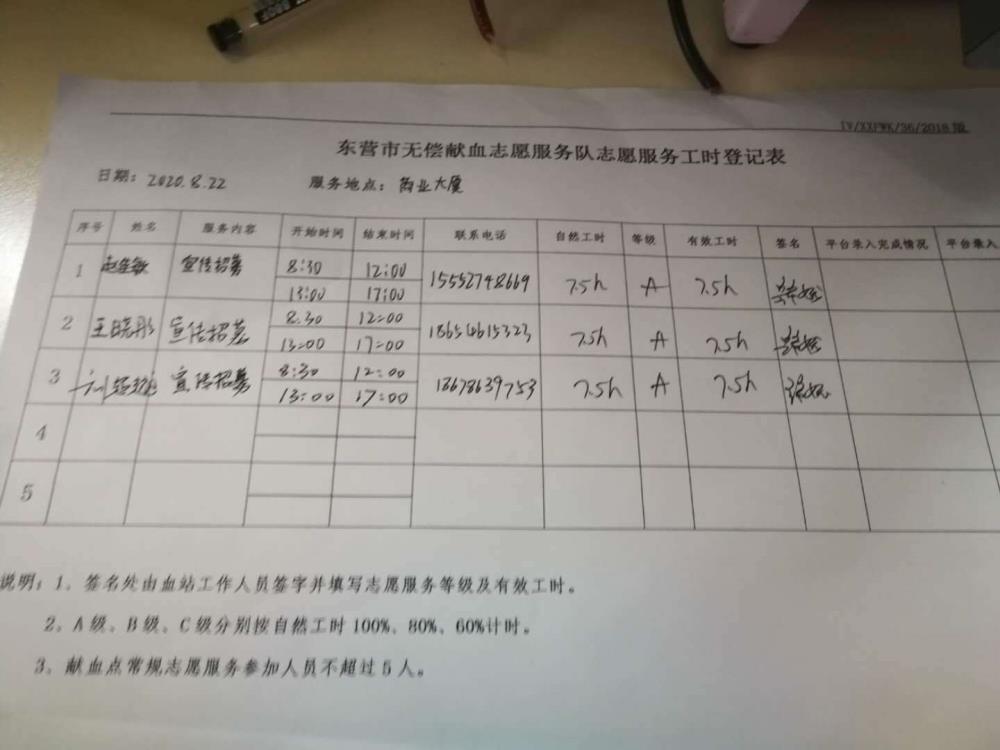 IV/XXFWK/36/2018版
东营市无偿献血志愿服务队志愿服务工时登记表
日期：2020.8.22 服务地点：商业大厦
序号 姓名 服务内容 开始时间 结束时间 联系电话 自然工时 等级 有效工时 签名 平台录入完成情况 平台录入
1 宣传招募 8:30 12:00 15552748669 7.5h A 7.5h
13:00 17:00
2 王晓彤 宣传招募 8:30 12:00 18654615323 7.5h A 7.5h
13:00 17:00
3 宣传招募 8:30 12:00 18678639753 7.5h A 7.5h
13:00 17:00
4
5
说明：1、签名处由血站工作人员签字并填写志愿服务等级及有效工时。
2、A级、B级、C级分别按自然工时100%、80%、60%计时。
3、献血点常规志愿服务参加人员不超过5人。